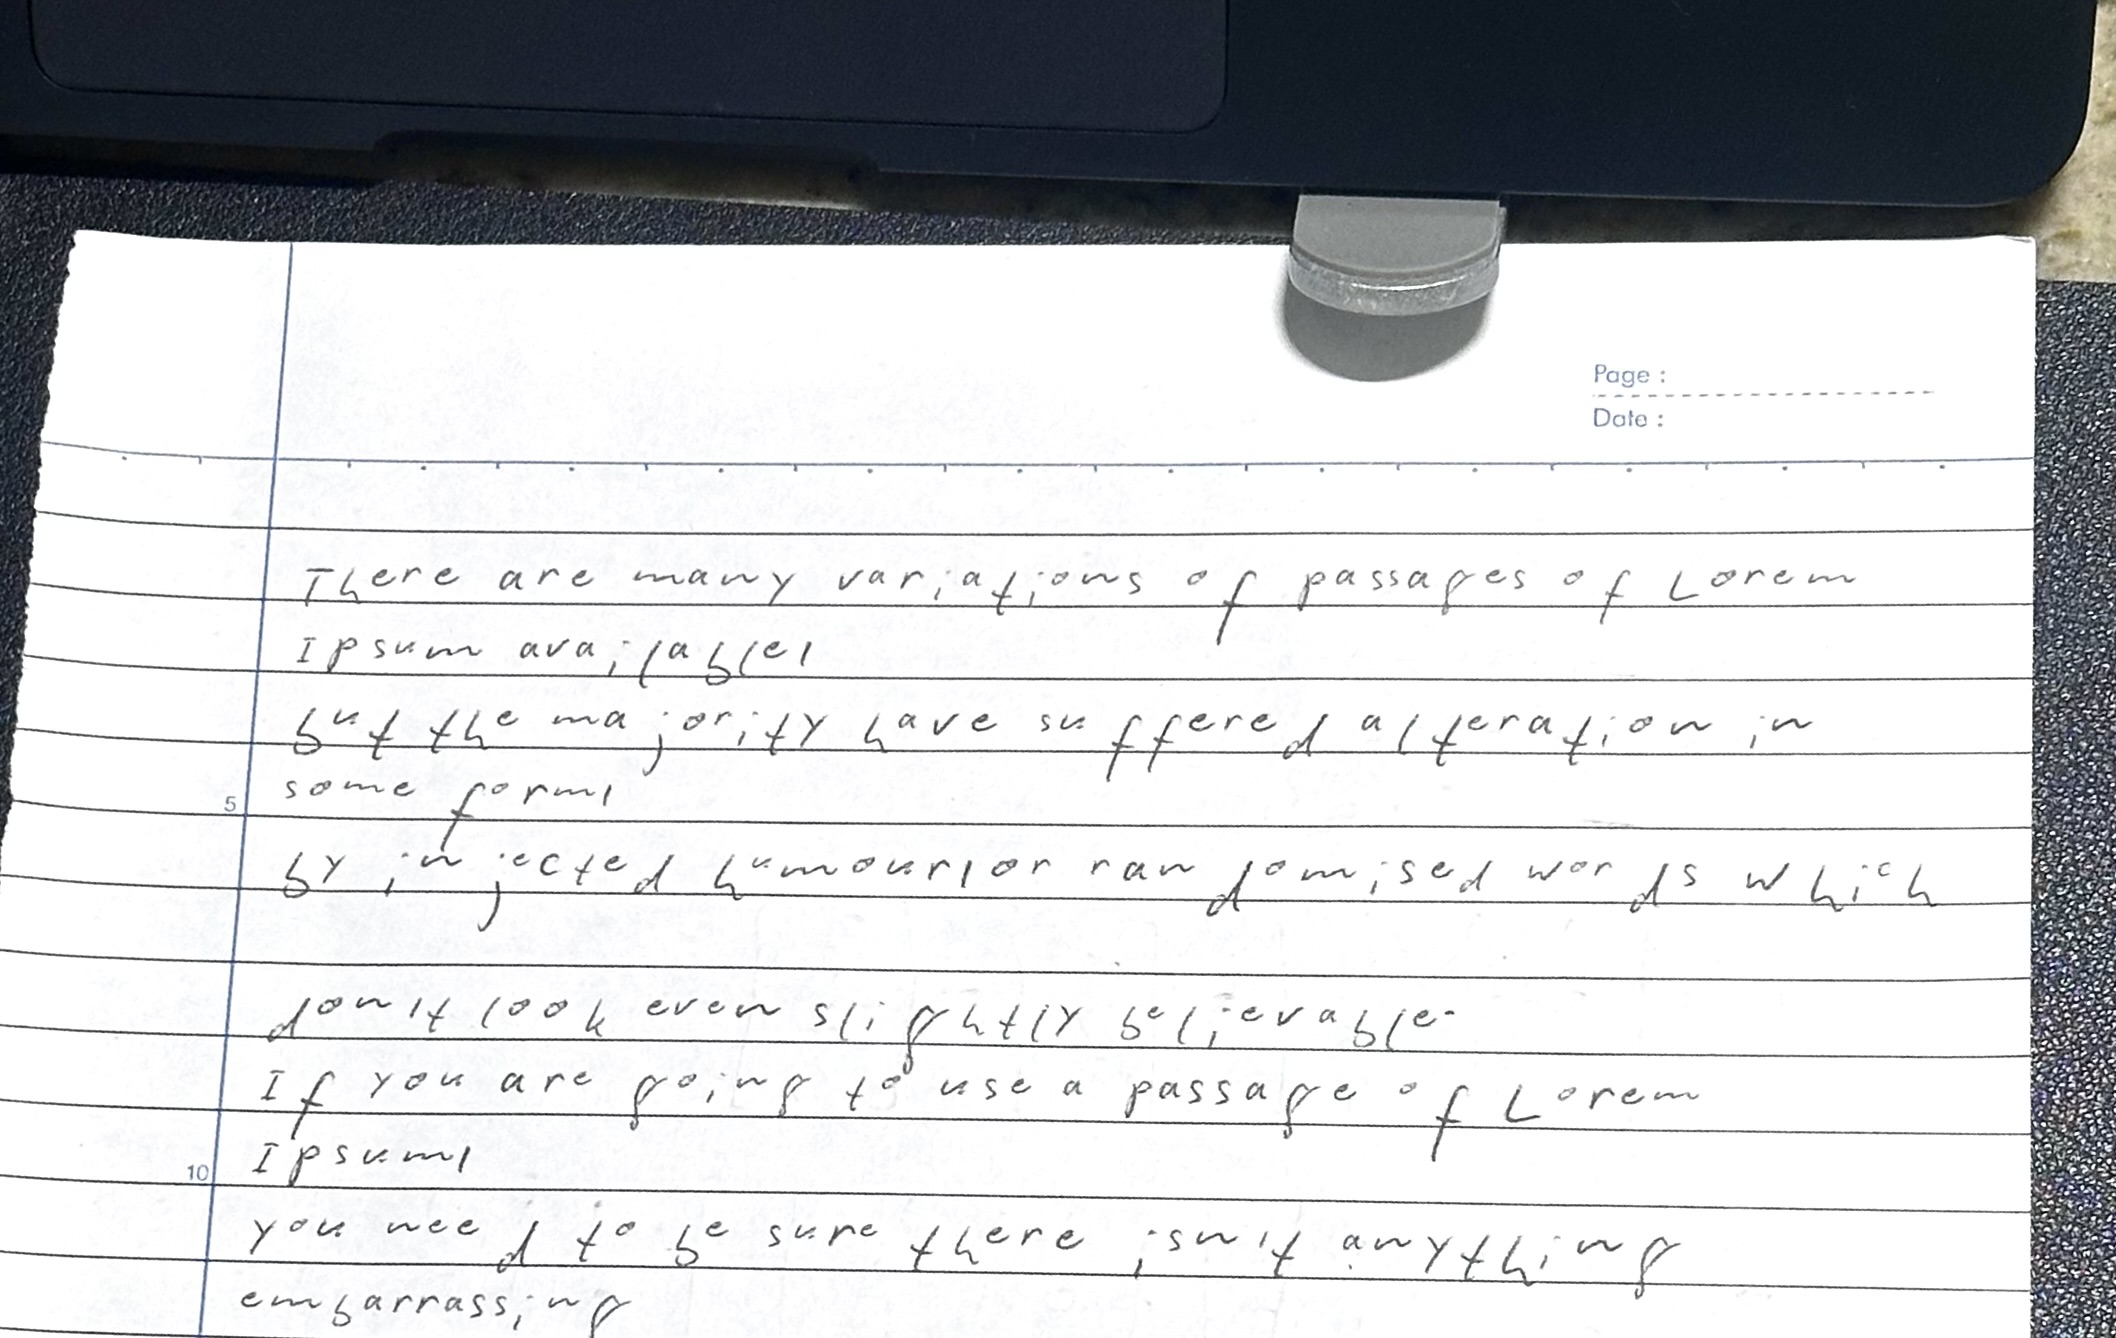 Page :
Date :
There are many variations of passages of Lorem
Ipsum available,
but the majority have suffered alteration in
5
some form,
by injected humour, or randomised words which
don't look even slightly believable.
If you are going to use a passage of Lorem
10
Ipsum,
you need to be sure there isn't anything
embarrassing